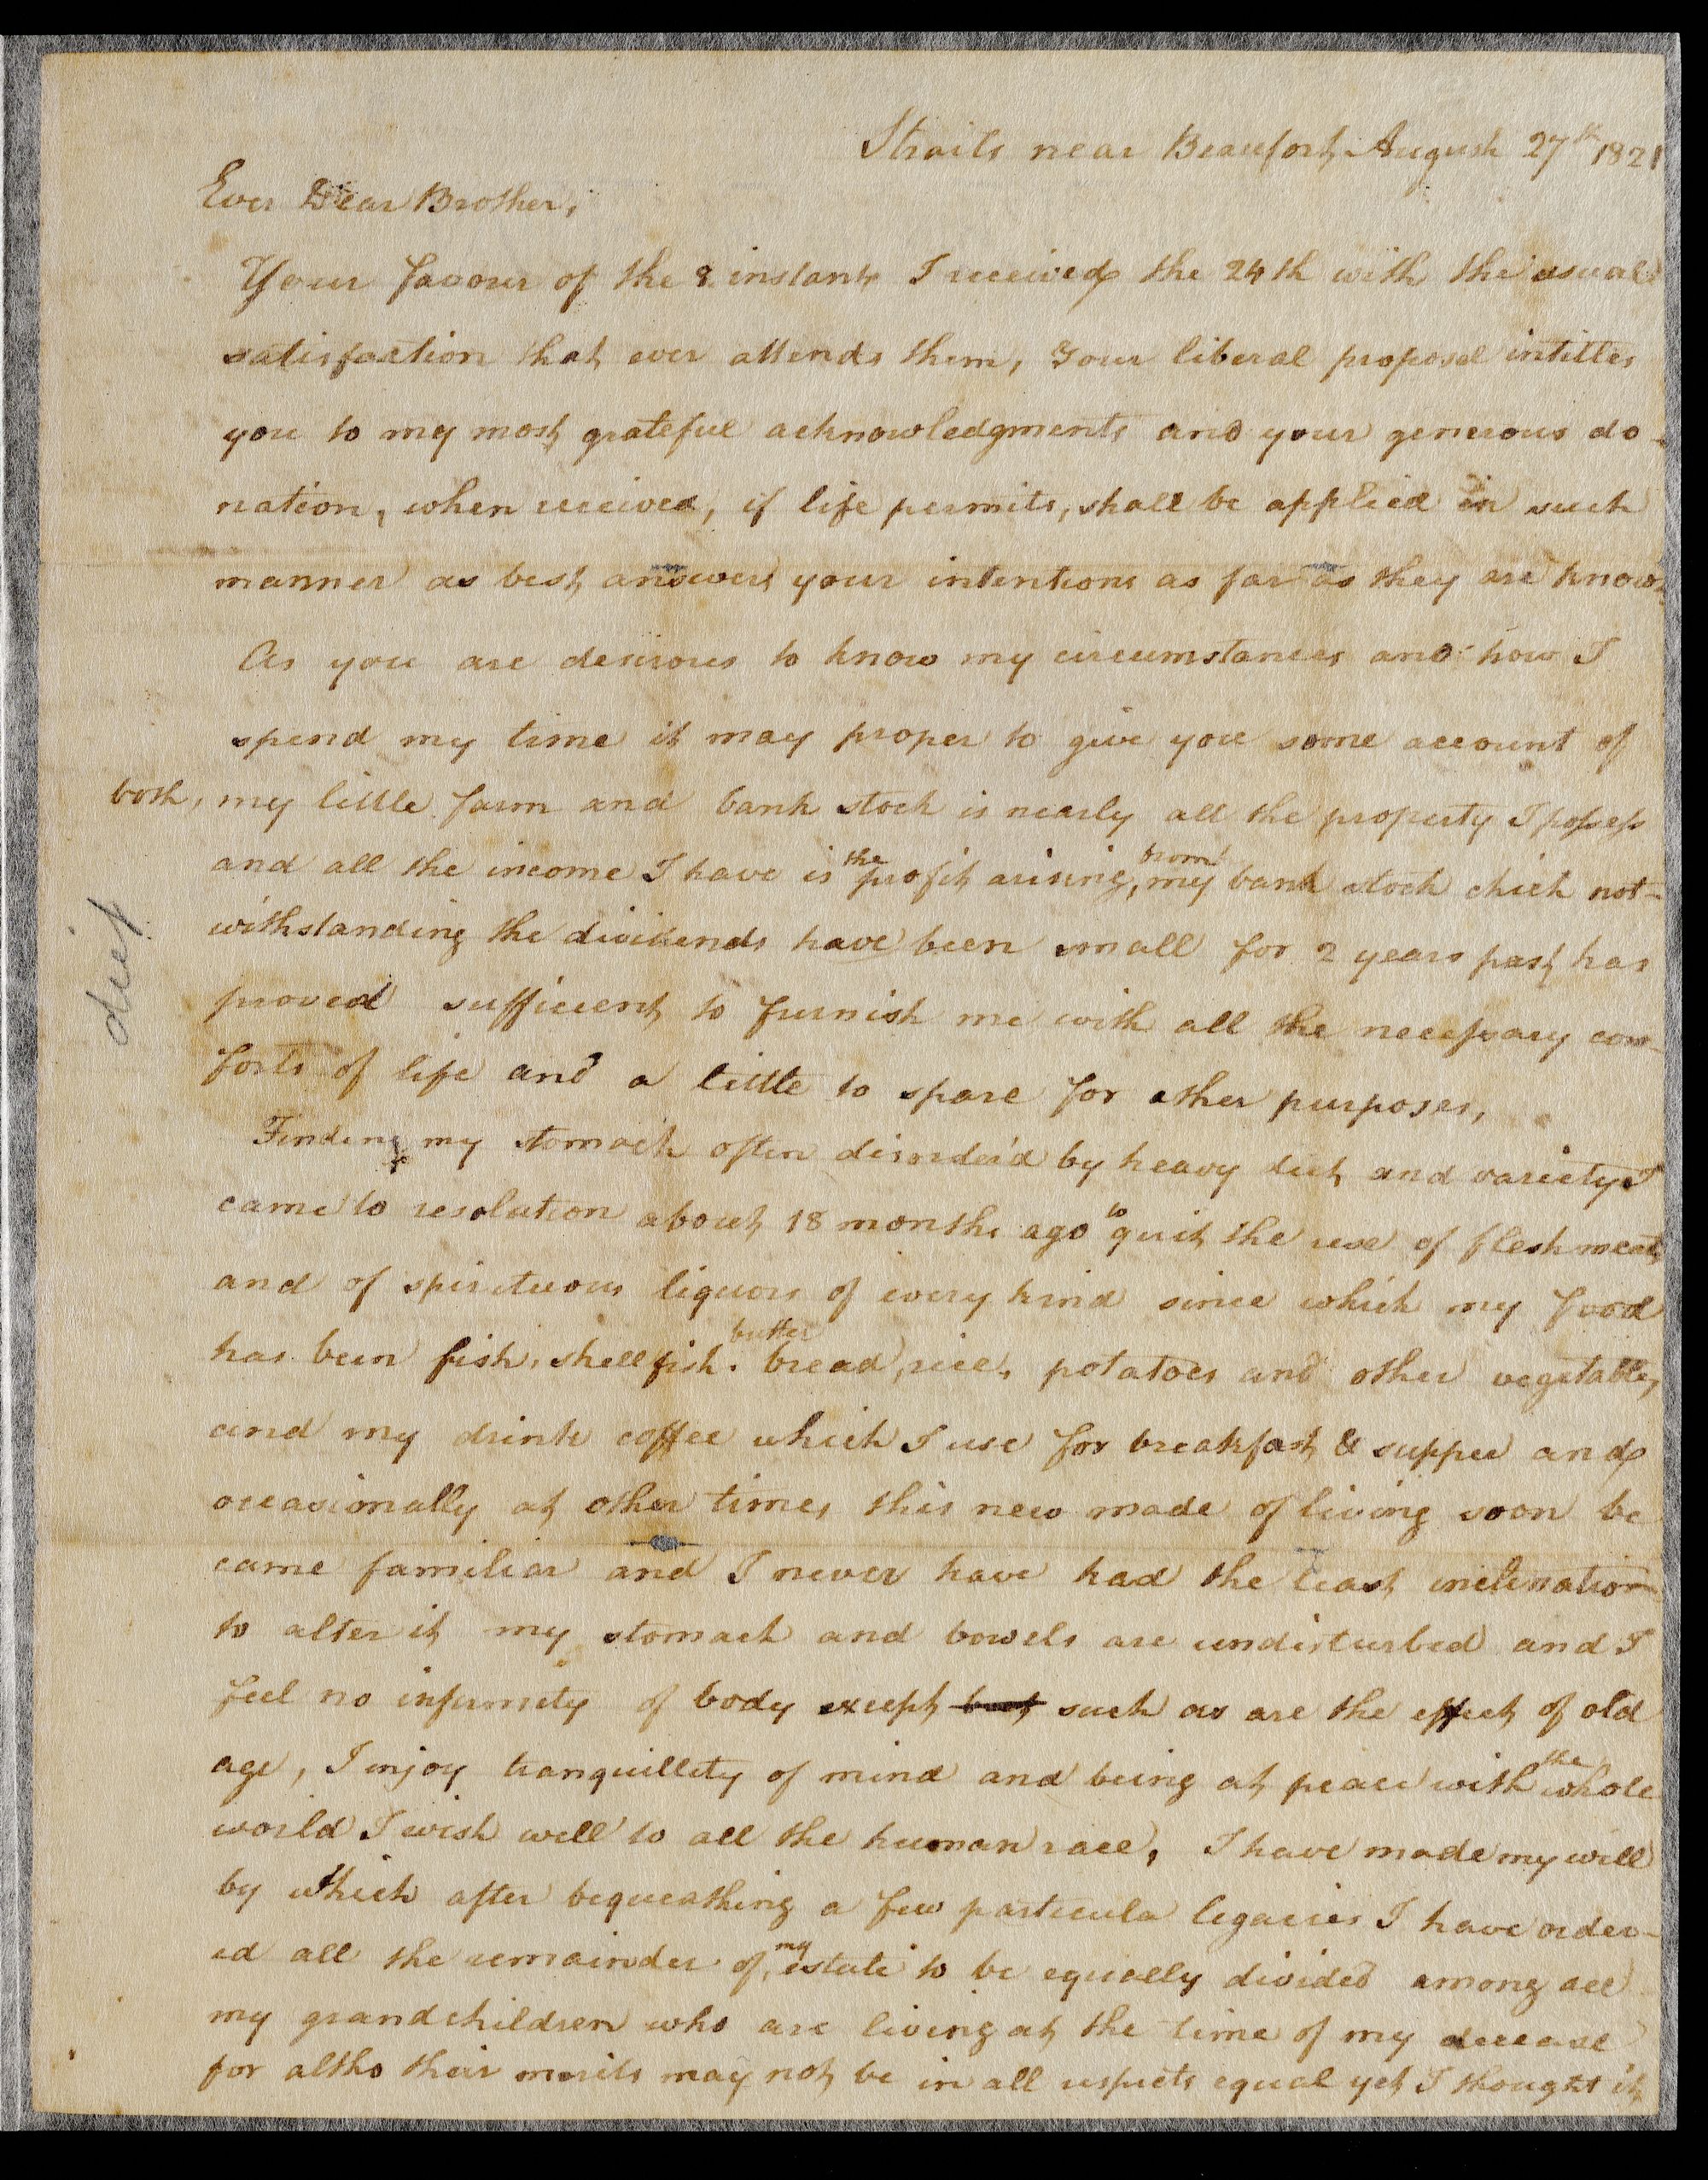 Straits near Beaufort, August 27th 1821
Ever Dear Brother,
Your favour of the 8 instant I received the 24th with the usual
satisfaction that ever attends them, Your liberal proposal intitles
you to my most grateful acknowledgments and your generous do-
nation, when received, if life permits, shall be applied in such
manner as best answers your intentions as far as they are known
As you are desirous to know my circumstances and how I
spend my time it may proper to give you some account of
both, my little farm and bank stock is nearly all the property I possess
and all the income I have is the profit arising, from my bank stock chich not=
withstanding the dividends have been small for 2 years past has
proved sufficient to furnish me with all the necessary com-
forts of life and a little to spare for other purposes,
Finding my stomach often disorder'd by heavy diet and variety I
came to resolution about 18 months ago to quit the use of flesh meat
and of spirituous liquors of every kind since which my food
has been fish, shellfish. butter bread, rice, potatoes and other vegetables,
and my drink coffee which I use for breakfast & supper and
occasionally at other times this new mode of living soon be
came familiar and I never have had the least inclination
to alter it my stomach and bowels are undisturbed and I
feel no infirmity of body except but such as are the effect of old
age, I injoy tranquillity of mind and being at peace with the whole
world I wish well to all the human race, I have made my will
by which after bequeathing a few particula legacies I have order-
ed all the remainder of, my estate to be equally divided among all
my grandchildren who are living at the time of my decease
for altho their merits may not be in all respects equal yet I thought it
diet